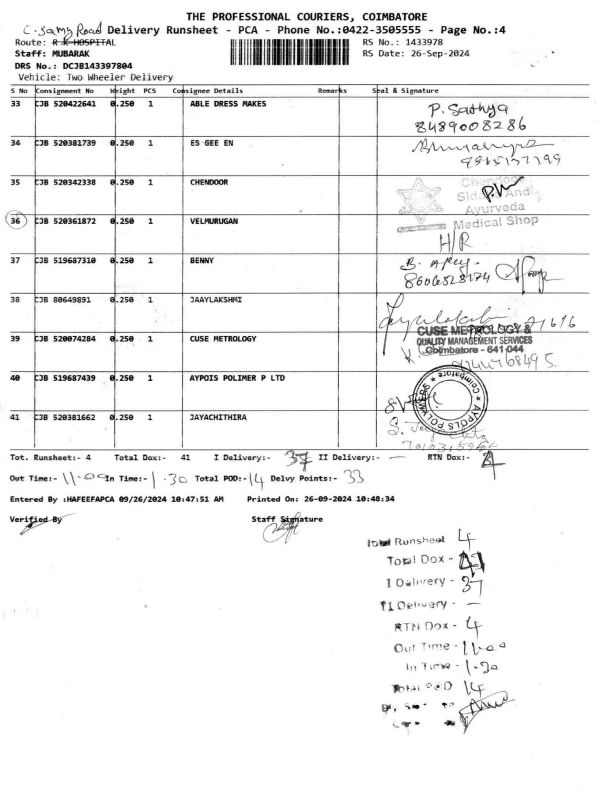 THE PROFESSIONAL COURIERS, COIMBATORE
C. Samy Road Delivery Runsheet - PCA - Phone No.:0422-3505555 - Page No.:4
Route: R K HOSPITAL RS No.: 1433978
Staff: MUBARAK RS Date: 26-Sep-2024
DRS No.: DCJB143397804
Vehicle: Two Wheeler Delivery
S No Consignment No Weight PCS Consignee Details Remarks Seal & Signature
33 CJB 520422641 0.250 1 ABLE DRESS MAKES P. Sathya
8489008286
34 CJB 520381739 0.250 1 ES GEE EN
35 CJB 520342338 0.250 1 CHENDOOR Chendoor
Ayurveda
Medical Shop
36 CJB 520361872 0.250 1 VELMURUGAN H/R
37 CJB 519687310 0.250 1 BENNY
38 CJB 80649891 0.250 1 JAAYLAKSHMI
39 CJB 520074284 0.250 1 CUSE METROLOGY CUSE METROLOGY &
QUALITY MANAGEMENT SERVICES
Coimbatore - 641 044
40 CJB 519687439 0.250 1 AYPOIS POLIMER P LTD AYPOLS POLYMERS
Coimbatore
41 CJB 520381662 0.250 1 JAYACHITHIRA
Tot. Runsheet:- 4 Total Dox:- 41 I Delivery:- 37 II Delivery:- — RTN Dox:- 4
Out Time:- 11.00 In Time:- 1.30 Total POD:- 14 Delvy Points:- 33
Entered By :HAFEEFAPCA 09/26/2024 10:47:51 AM Printed On: 26-09-2024 10:48:34
Verified By Staff Signature
Total Runsheet 4
Total Dox - 41
I Delivery - 37
II Delivery - —
RTN Dox - 4
Out Time - 11.00
In Time - 1.30
Total POD 14